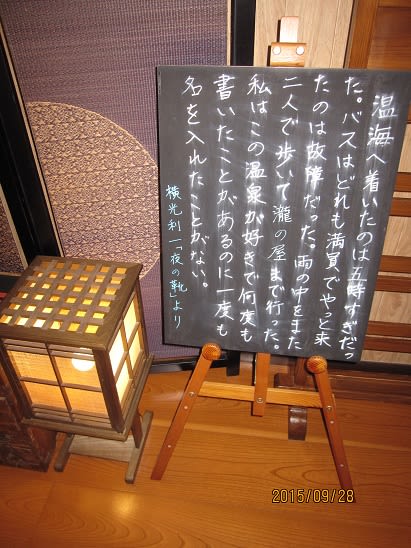 温海へ着いたのは五時すぎだっ
た。バスはどれも満員でやっと来
たのは故障だった。雨の中をまた
二人で歩いて瀧の屋まで行った。
私はこの温泉が好きで何度も
書いたことがあるのに一度も
名を入れたことがない。
横光利一「夜の靴」より
2015/09/28